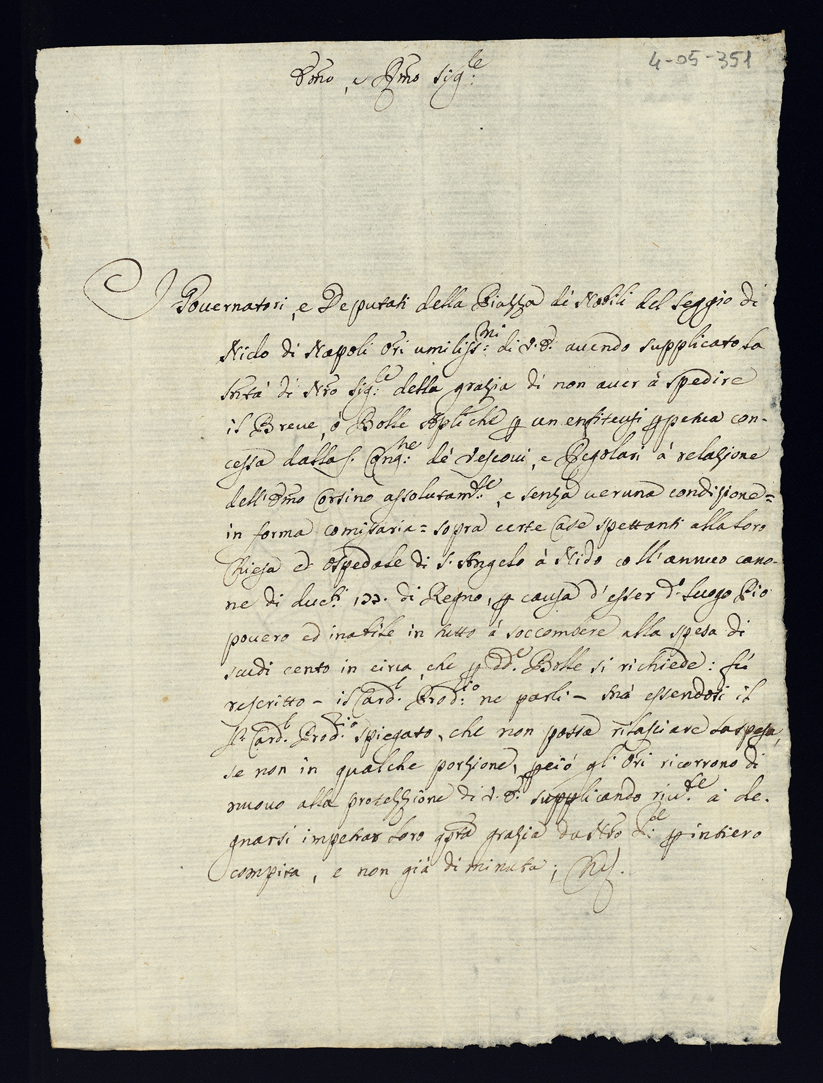 4-05-351
Emo, e Rmo Sig.re
I Gouernatori, e Deputati della Piazza de Nobili del Seggio di
Nido di Napoli Ori umiliss.mi di V.E. auendo supplicato la
Sntà di Nro Sig.re della grazia di non auer à spedire
il Breue, ò Bolle Apliche p un enfiteusi ppetua con-
cessa dalla S. Cong.ne de Vescoui, e Regolari à relazione
dell'Emo Corsino assolutam.te, e senza ueruna condizione=
in forma comissaria= sopra certe Case spettanti alla loro
Chiesa ed Ospedale di S. Angelo à Nido coll'annuo cano-
ne di duc.ti di Regno, p causa d'esser d.o Luogo Pio
pouero ed inabile in tutto à soccombere alla spesa di
scudi cento in circa, che p dd.e Bolle si richiede: fù
rescritto - il Card.l Prod.rio ne parli - Mà essendosi il
Sr Card.l Prod.rio spiegato, che non possa rilasciare la spesa,
se non in qualche porzione, pciò gl'Ori ricorrono di
nuouo alla protezzione di V.E. supplicando riu.te à de-
gnarsi impetrar loro qsta grazia da Nro S.re p intiero
compita, e non già diminuta; Che